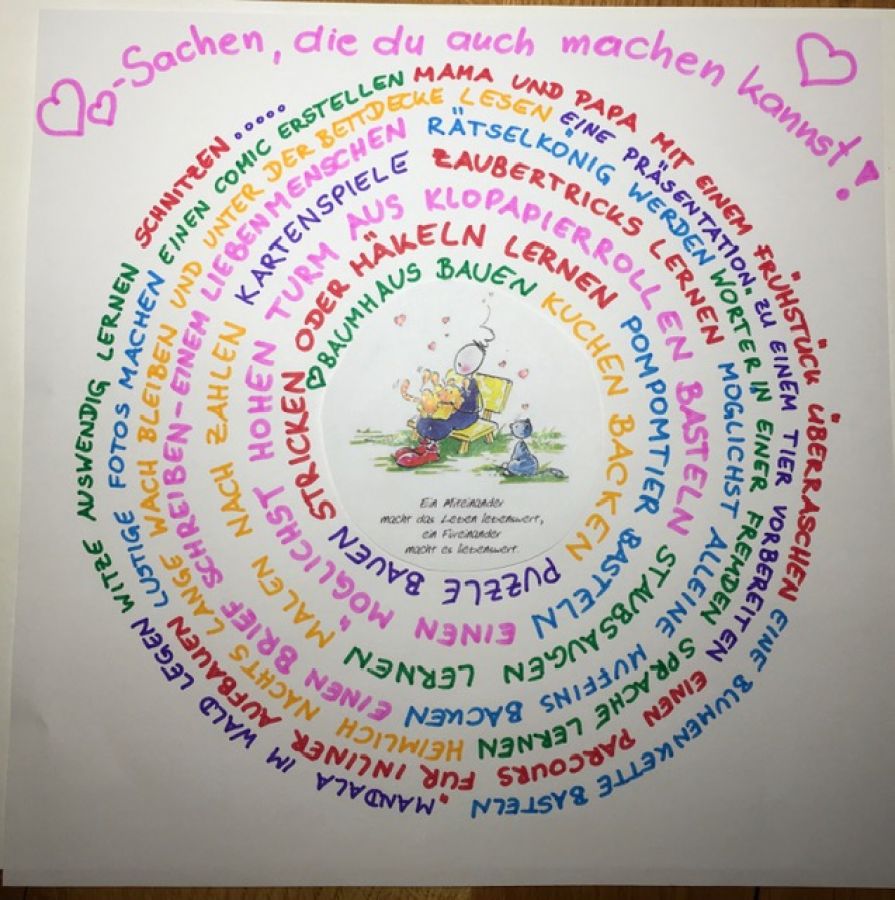 -Sachen, die du auch machen kannst!
BAUMHAUS BAUEN
KUCHEN BACKEN
PUZZLE BAUEN
STRICKEN ODER HÄKELN LERNEN
POMPOMTIER BASTELN
EINEN MÖGLICHST HOHEN TURM AUS KLOPAPIERROLLEN BASTELN
STAUBSAUGEN LERNEN
MALEN NACH ZAHLEN
KARTENSPIELE
ZAUBERTRICKS LERNEN
MÖGLICHST ALLEINE MUFFINS BACKEN
EINEN BRIEF SCHREIBEN-EINEM LIEBENMENSCHEN
RÄTSELKÖNIG WERDEN
WÖRTER IN EINER FREMDEN SPRACHE LERNEN
HEIMLICH NACHTS LANGE WACH BLEIBEN UND UNTER DER BETTDECKE LESEN
EINE PRÄSENTATION ZU EINEM TIER VORBEREITEN
EINEN PARCOURS FÜR INLINER AUFBAUEN
LUSTIGE FOTOS MACHEN
EINEN COMIC ERSTELLEN
MAMA UND PAPA MIT EINEM FRÜHSTÜCK ÜBERRASCHEN
EINE BLUMENKETTE BASTELN
"MANDALA IM WALD LEGEN
WITZE AUSWENDIG LERNEN
SCHNITZEN .....
Ein Miteinander
macht das Leben lebenswert,
ein Füreinander
macht es liebenswert.